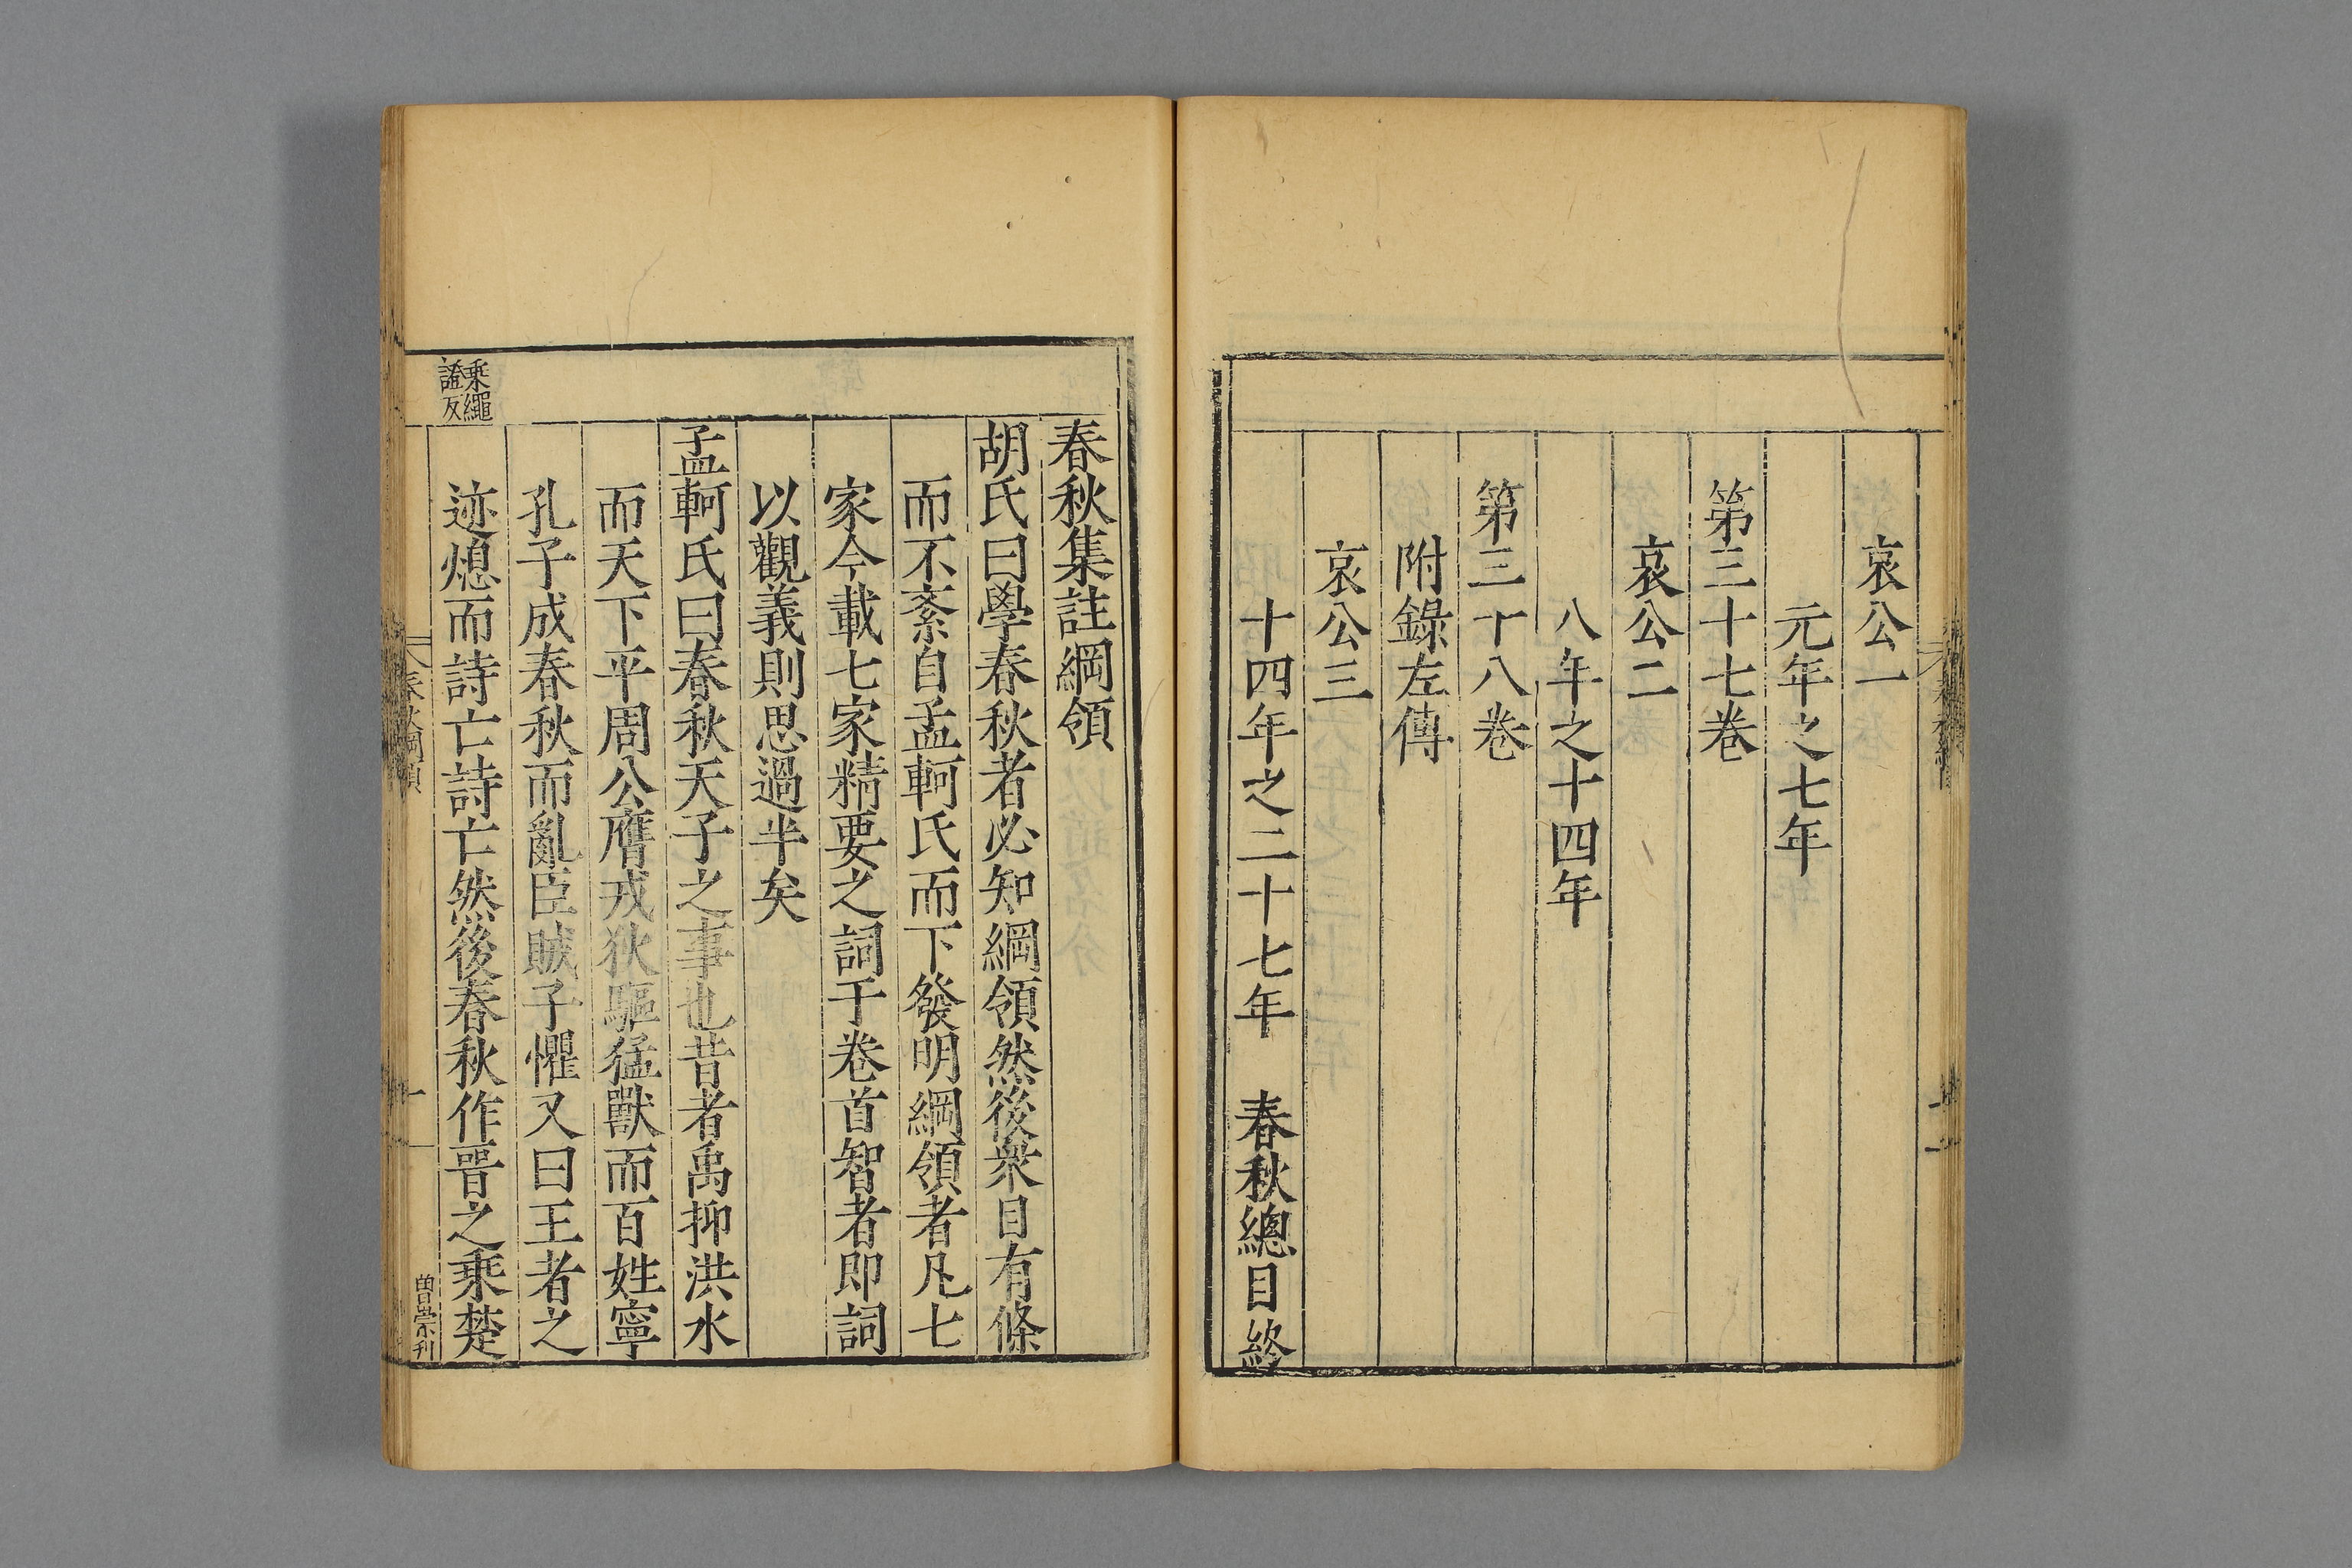 哀公一
元年之七年
第三十七卷
哀公二
八年之十四年
第三十八卷
附錄左傳
哀公三
十四年之二十七年　春秋總目終
春秋集註綱領
胡氏曰學春秋者必知綱領然後衆目有條
而不紊自孟軻氏而下發明綱領者凡七
家今載七家精要之詞于卷首智者即詞
以觀義則思過半矣
孟軻氏曰春秋天子之事也昔者禹抑洪水
而天下平周公膺戎狄驅猛獸而百姓寧
孔子成春秋而亂臣賊子懼又曰王者之
乘繩
證反
迹熄而詩亡詩亡然後春秋作晉之乘楚
春秋綱領
一
曽崇刊